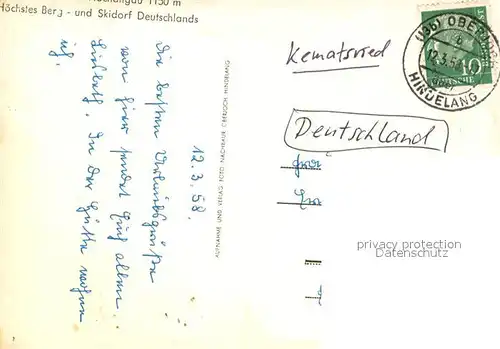 1150 m
Höchstes Berg - und Skidorf Deutschlands
12.3.58.
Die besten Urlaubsgrüße
von hier sendet Euch allen
Liesbeth. In der Hütte wohne
ich.
AUFNAHME UND VERLAG FOTO HEIMHUBER OBERJOCH HINDELANG
Kematsried
Deutschland
(13b) OBERJOCH
12.3.58
HINDELANG
10
DEUTSCHE
privacy protection
Datenschutz